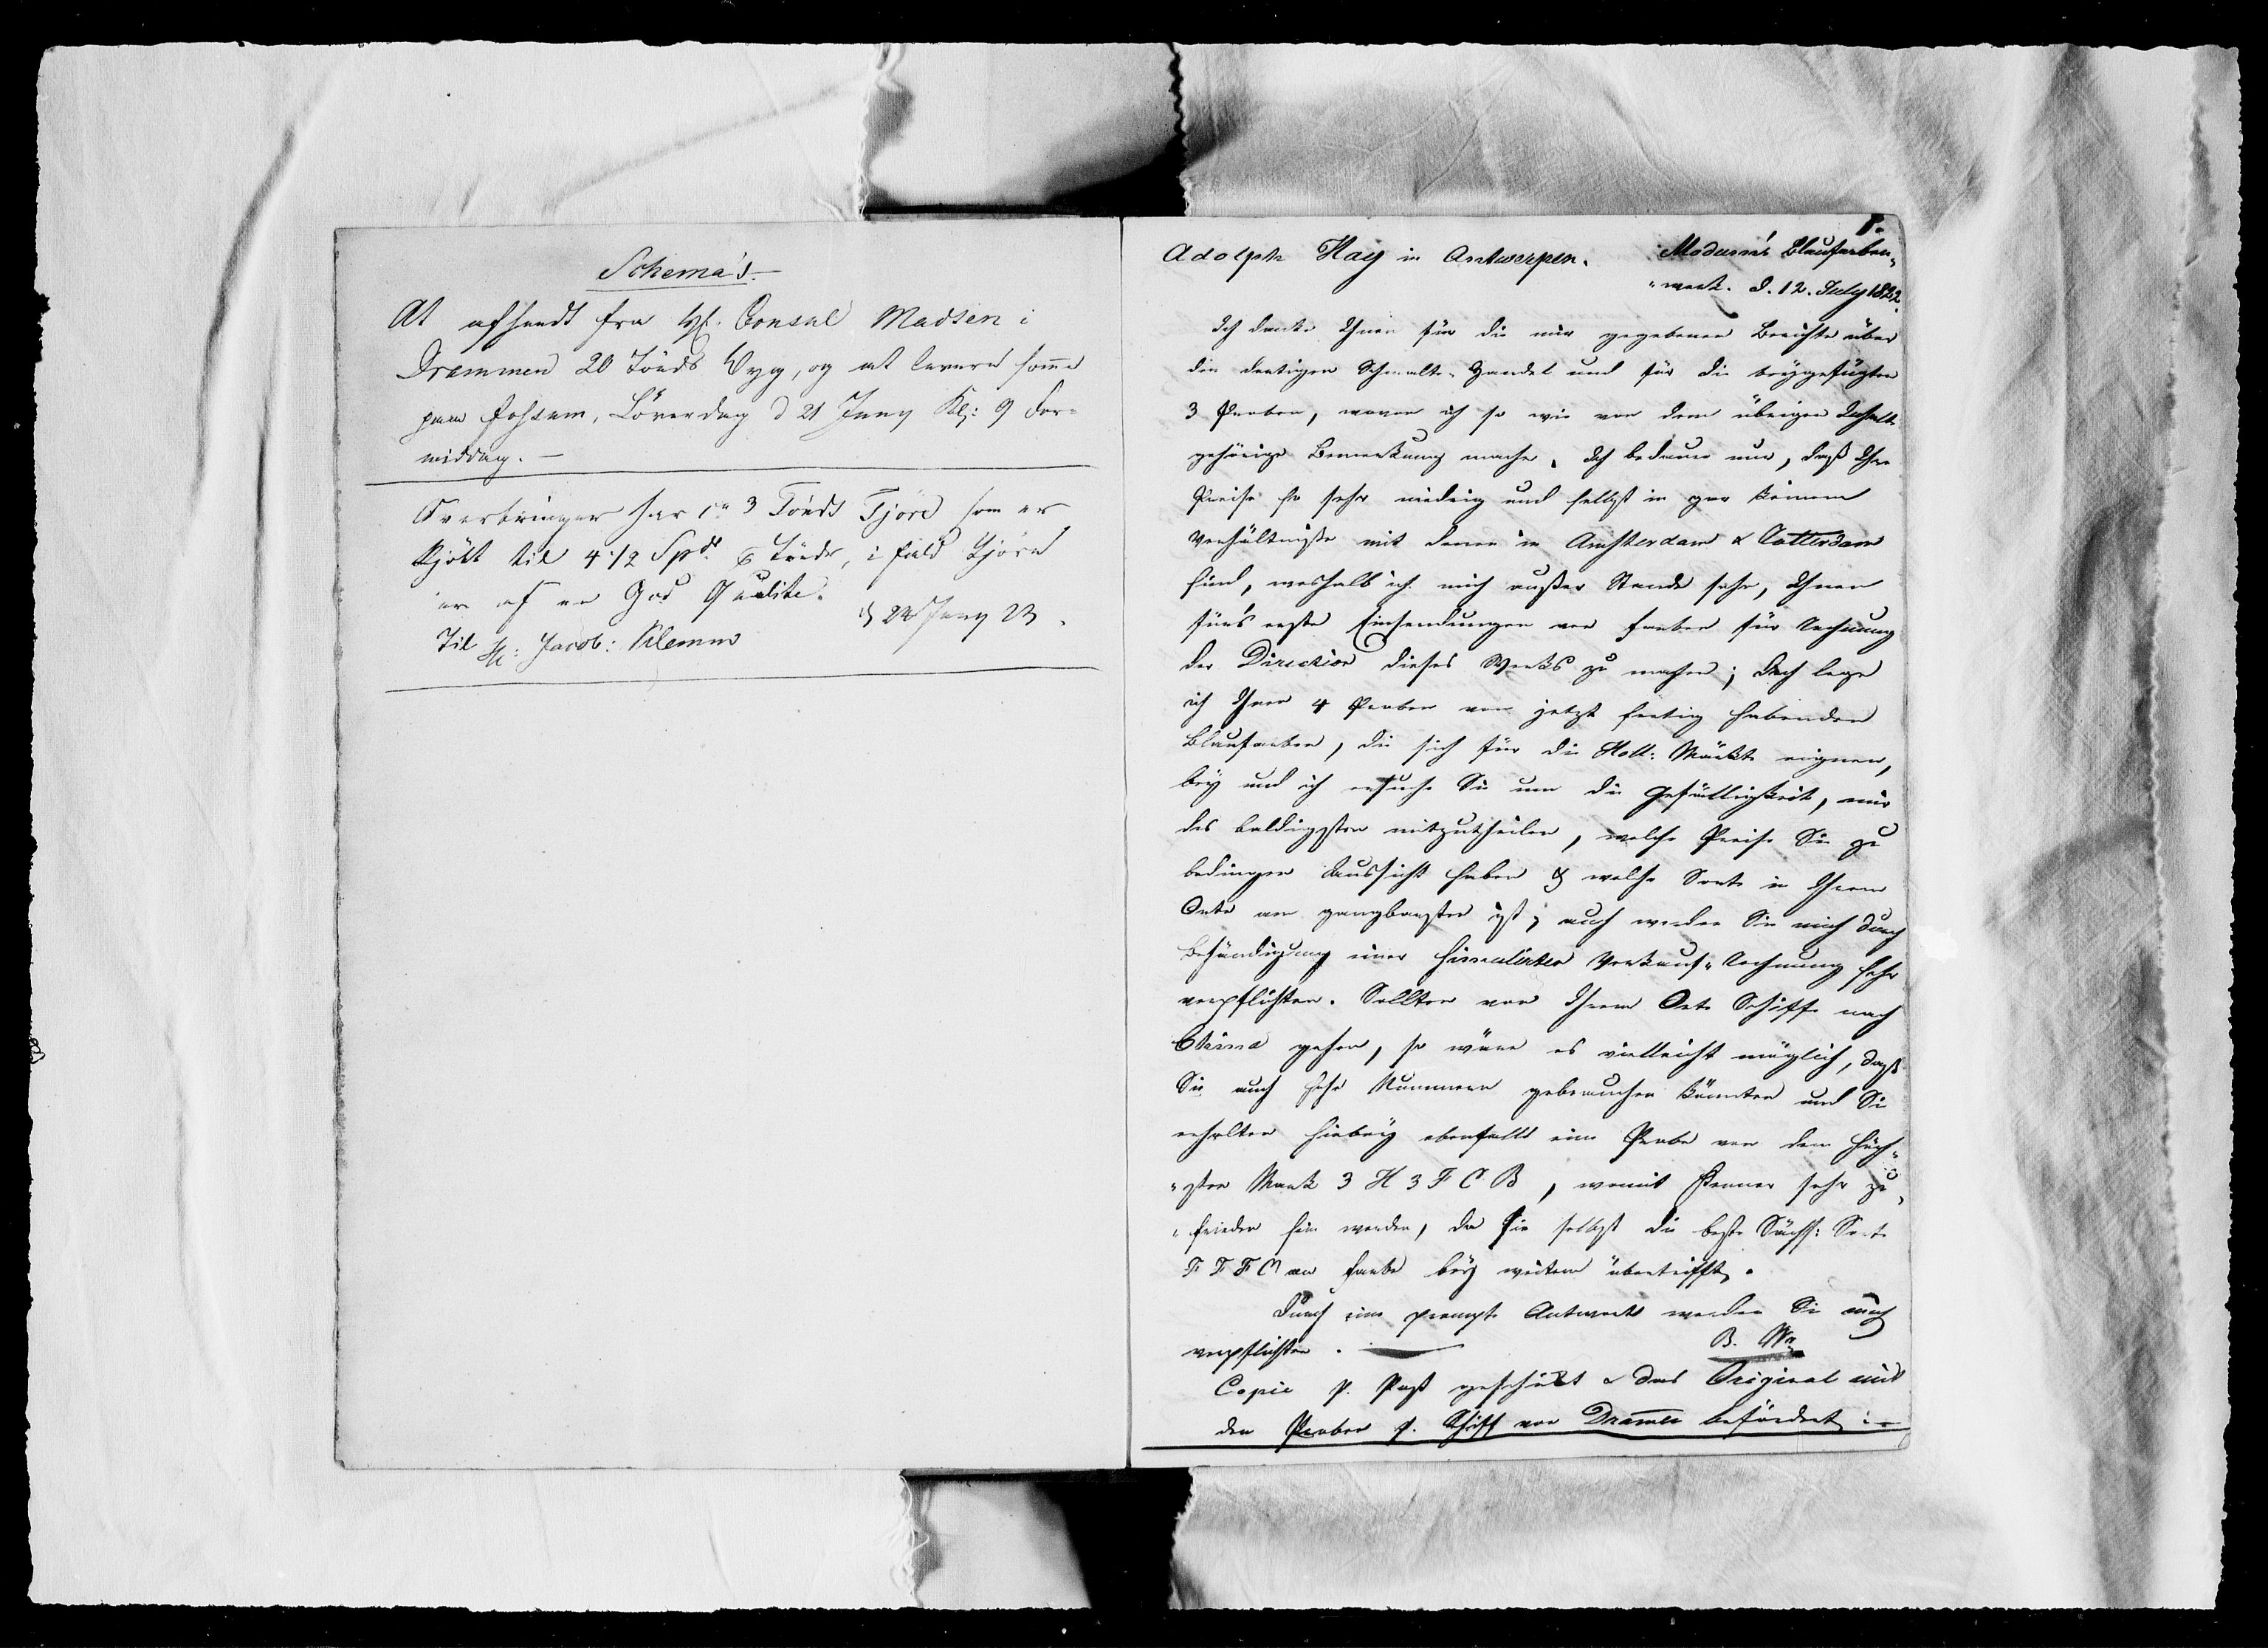 Schema's.
At afsendt fra H. Consul Madsen i
Drammen 20 Tönds Byg, og at levere samme
paa Fossum, Löverdag d 21 Juny Kl: 9 For-
middag.
Overbringer har ca 3 Tönds Tjöre som er
kjött til 4 1/2 Spd. Tönde, i fald Tjöre
er af en God Qualite.
d 22 Juny 23.
Til H: Jacob: Klemm
1.
Adolph Hay in Antwerpen. Modum's Blaufarben-
werk. d. 12. July 1822.
Ich danke Ihnen für die mir gegebenen Berichte über
den dortigen Schmalte-Handel und für die beygefügten
3 Proben, wovon ich so wie von dem übrigen Inhalte
gehörige Bemerkung mache. Ich bedaure nur, daß Ihre
Preise so sehr niedrig und selbst in gar keinem
Verhältniße mit denen in Amsterdam & Rotterdam
sind, weshalb ich mich außer Stande sehe, Ihnen
für's erste Einsendungen von Farben für Rechnung
der Direction dieses Werks zu machen; doch lege
ich Ihnen 4 Proben von jetzt fertig habenden
Blaufarben, die sich für die Holl: Märkte eignen,
bey und ich ersuche Sie um die Gefälligkeit, mir
des baldigsten mitzutheilen, welche Preise Sie zu
bedingen Aussicht haben & welche Sorte in Ihrem
Orte am gangbarsten ist; auch werden Sie mich durch
Behändigung einer simulirten Verkauf-Rechnung sehr
verpflichten. Sollten von Ihrem Orte Schiffe nach
China gehen, so wäre es vielleicht möglich, daß
Sie auch hohe Nummern gebrauchen könnten und Sie
erhalten hiebey ebenfalls eine Probe von dem höch-
"sten Mark 3 H 3 F C B, womit Kenner sehr zu-
"frieden sein werden, da sie selbst die beste Sächs: Sorte
F F F C an Farbe bey weitem übertrifft.
Durch eine prompte Antwort werden Sie mich
verpflichten. B. W.
Copie p. Post geschickt & das Original mit
den Proben p. Schiff von Dramen befördert.